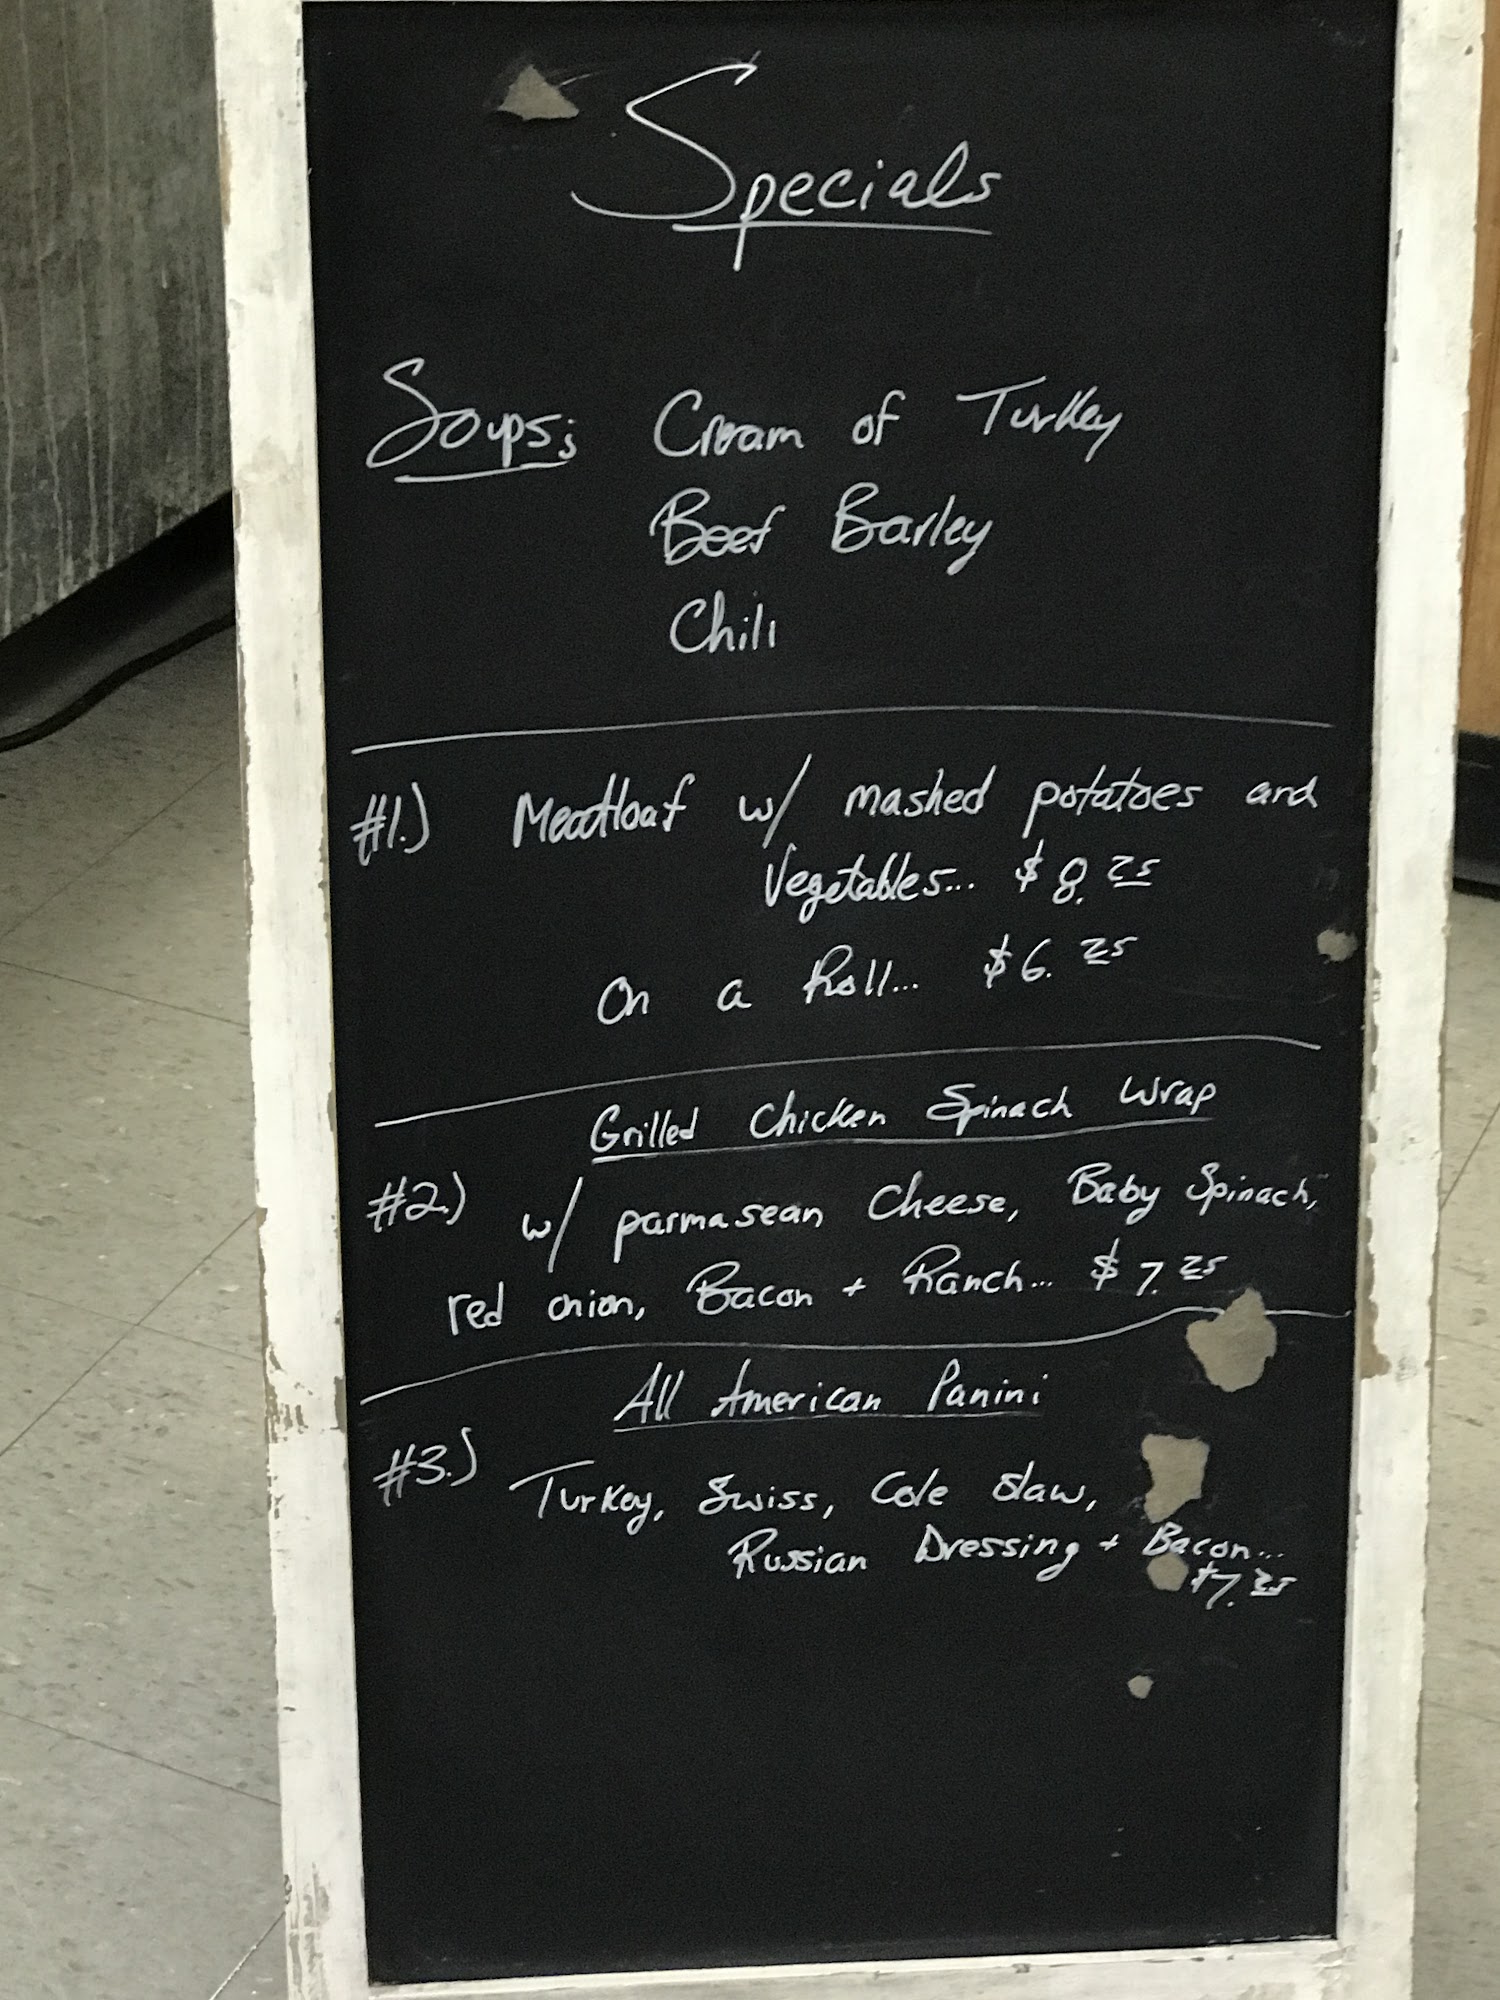 Specials
Soups; Cream of Turkey
Beef Barley
Chili
#1.) Meatloaf w/ mashed potatoes and
Vegetables... $8.25
On a Roll... $6.25
Grilled Chicken Spinach Wrap
#2.) w/ parmasean Cheese, Baby Spinach,
red onion, Bacon + Ranch... $7.25
All American Panini
#3.) Turkey, Swiss, Cole slaw,
Russian Dressing + Bacon...
$7.25